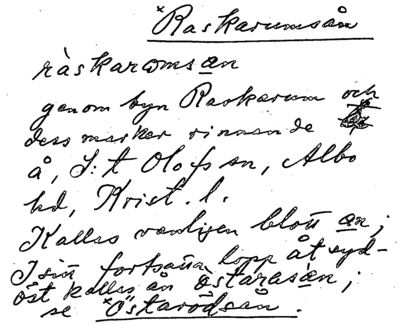 *Raskarumsån
ràskaromsan
genom byn Raskarum och
dess marker rinnande
å, S:t Olofs sn, Albo
hd, Krist. l.
Kallas vanligen blott an;
I sin fortsatta lopp åt syd-
öst kallas ån östarasàn;
se *Östarödsån.